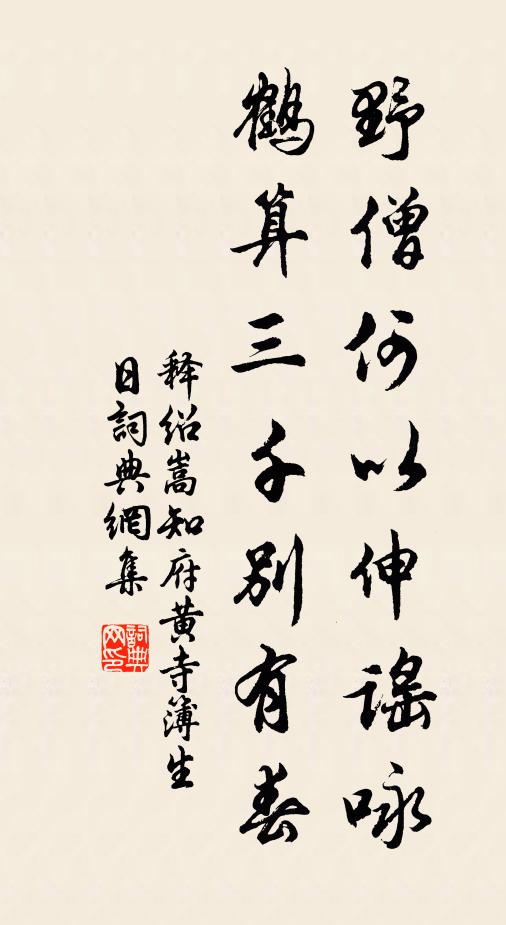 野僧何以伸謠咏
鶴算三千別有春
释绍嵩知府黄寺簿生
日詞典網集
詞典
网印